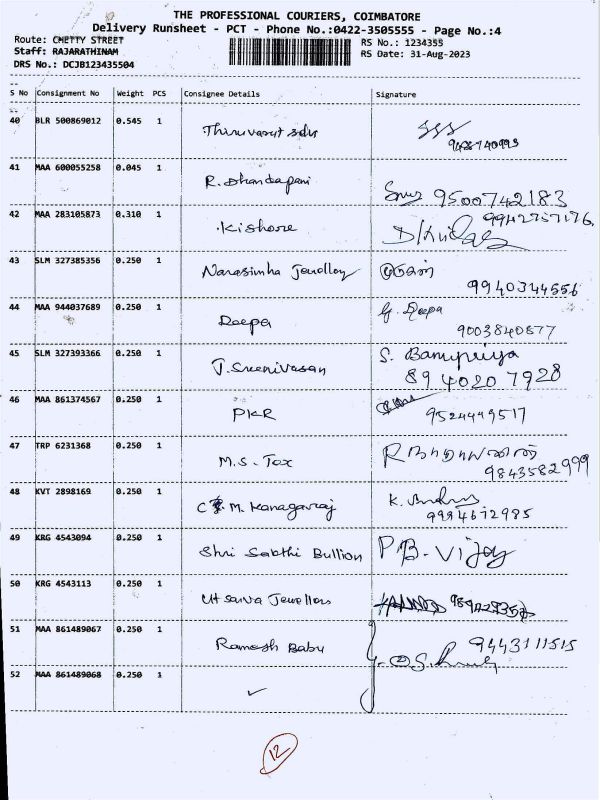 THE PROFESSIONAL COURIERS, COIMBATORE
Delivery Runsheet - PCT - Phone No.:0422-3505555 - Page No.:4
Route: CHETTY STREET RS No.: 1234355
Staff: RAJARATHINAM RS Date: 31-Aug-2023
DRS No.: DCJB123435504
S No Consignment No Weight PCS Consignee Details Signature
40 BLR 500869012 0.545 1
41 MAA 600055258 0.045 1 R. Dhandapani 9500742183
42 MAA 283105873 0.310 1 Kishore
43 SLM 327385356 0.250 1 Narasimha Jewellery முருகன்
9940344556
44 MAA 944037689 0.250 1 Deepa G. Deepa
9003840877
45 SLM 327393366 0.250 1 T. Sreenivasan S. Banupriya
89 4020 7928
46 MAA 861374567 0.250 1 PKR 9524449517
47 TRP 6231368 0.250 1 M.S. Tax R நாராயணன்
9843582999
48 KVT 2898169 0.250 1 C M. Kanagaraj K.
9994672985
49 KRG 4543094 0.250 1 Shri Sakthi Bullion P B. Vijay
50 KRG 4543113 0.250 1 Utsava Jewellers
51 MAA 861489067 0.250 1 Ramesh Babu 9443111515
52 MAA 861489068 0.250 1 ✓
12